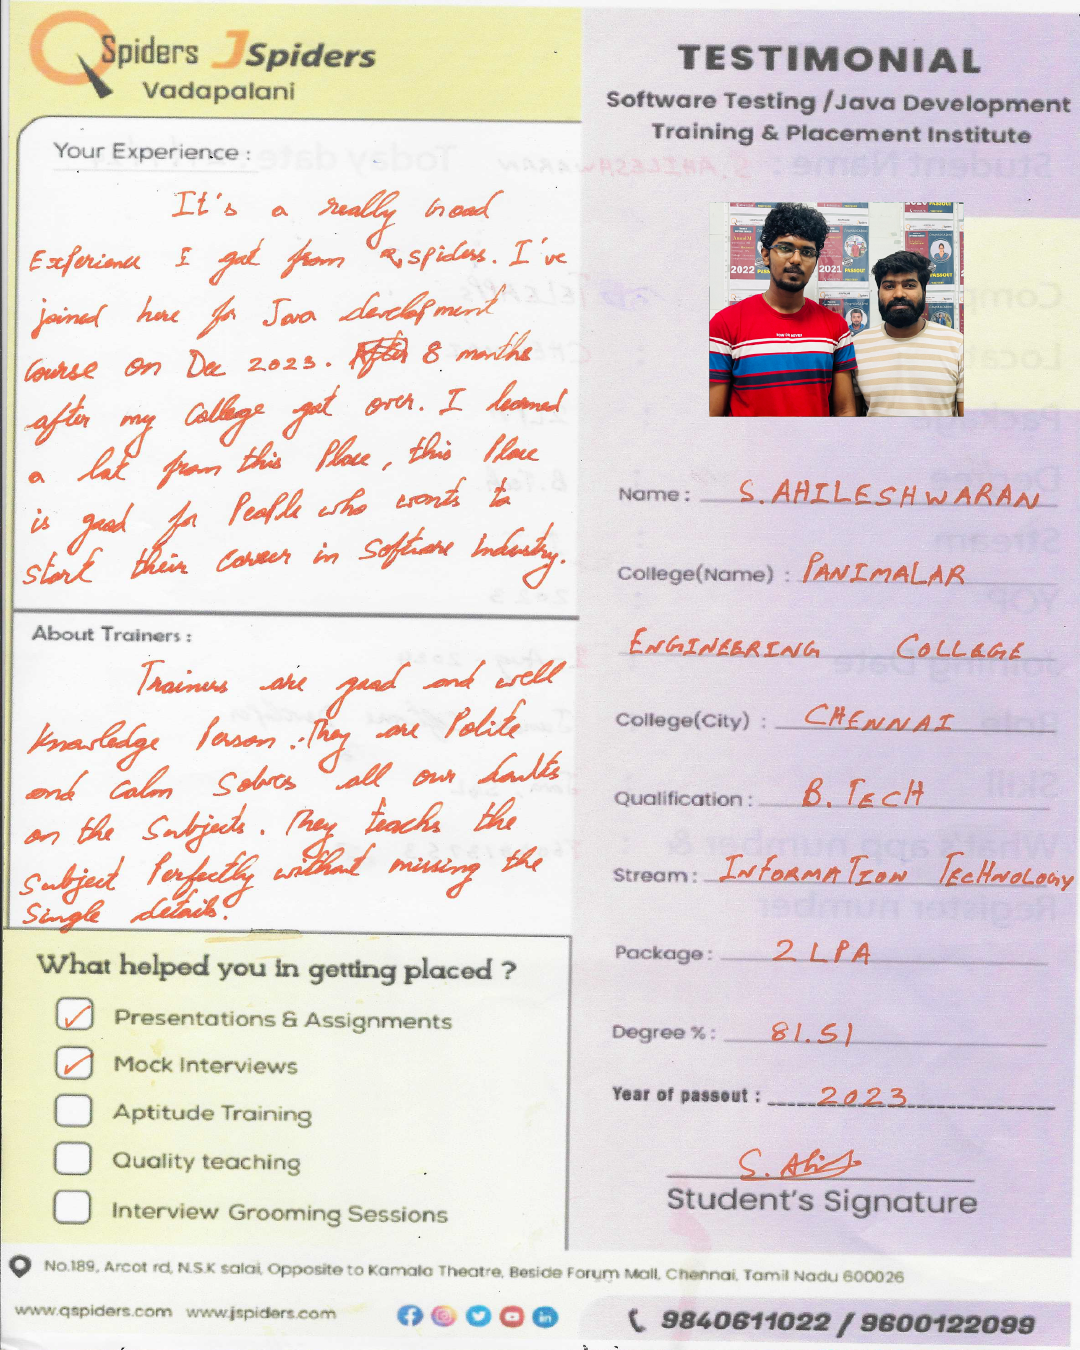 QSpiders JSpiders
Vadapalani
Your Experience :
It's a really Good
Experience I got from Qspiders. I've
joined here for Java development
course on Dec 2023. After 8 months
after my College got over. I learned
a lot from this Place, this Place
is good for People who wants to
start their career in software industry.
About Trainers :
Trainers are good and well
knowledge Person. They are Polite
and Calm Solves all our doubts
on the Subjects. They teachs the
Subject Perfectly without missing the
Single details.
What helped you in getting placed ?
Presentations & Assignments
Mock Interviews
Aptitude Training
Quality teaching
Interview Grooming Sessions
TESTIMONIAL
Software Testing /Java Development
Training & Placement Institute
2022 PASSOUT
2021 PASSOUT
Name : S. AHILESHWARAN
College(Name) : PANIMALAR
ENGINEERING COLLEGE
College(City) : CHENNAI
Qualification : B. TECH
Stream : INFORMATION TECHNOLOGY
Package : 2 LPA
Degree % : 81.51
Year of passout : 2023
Student's Signature
No.189, Arcot rd, N.S.K salai, Opposite to Kamala Theatre, Beside Forum Mall, Chennai, Tamil Nadu 600026
www.qspiders.com www.jspiders.com
9840611022 / 9600122099